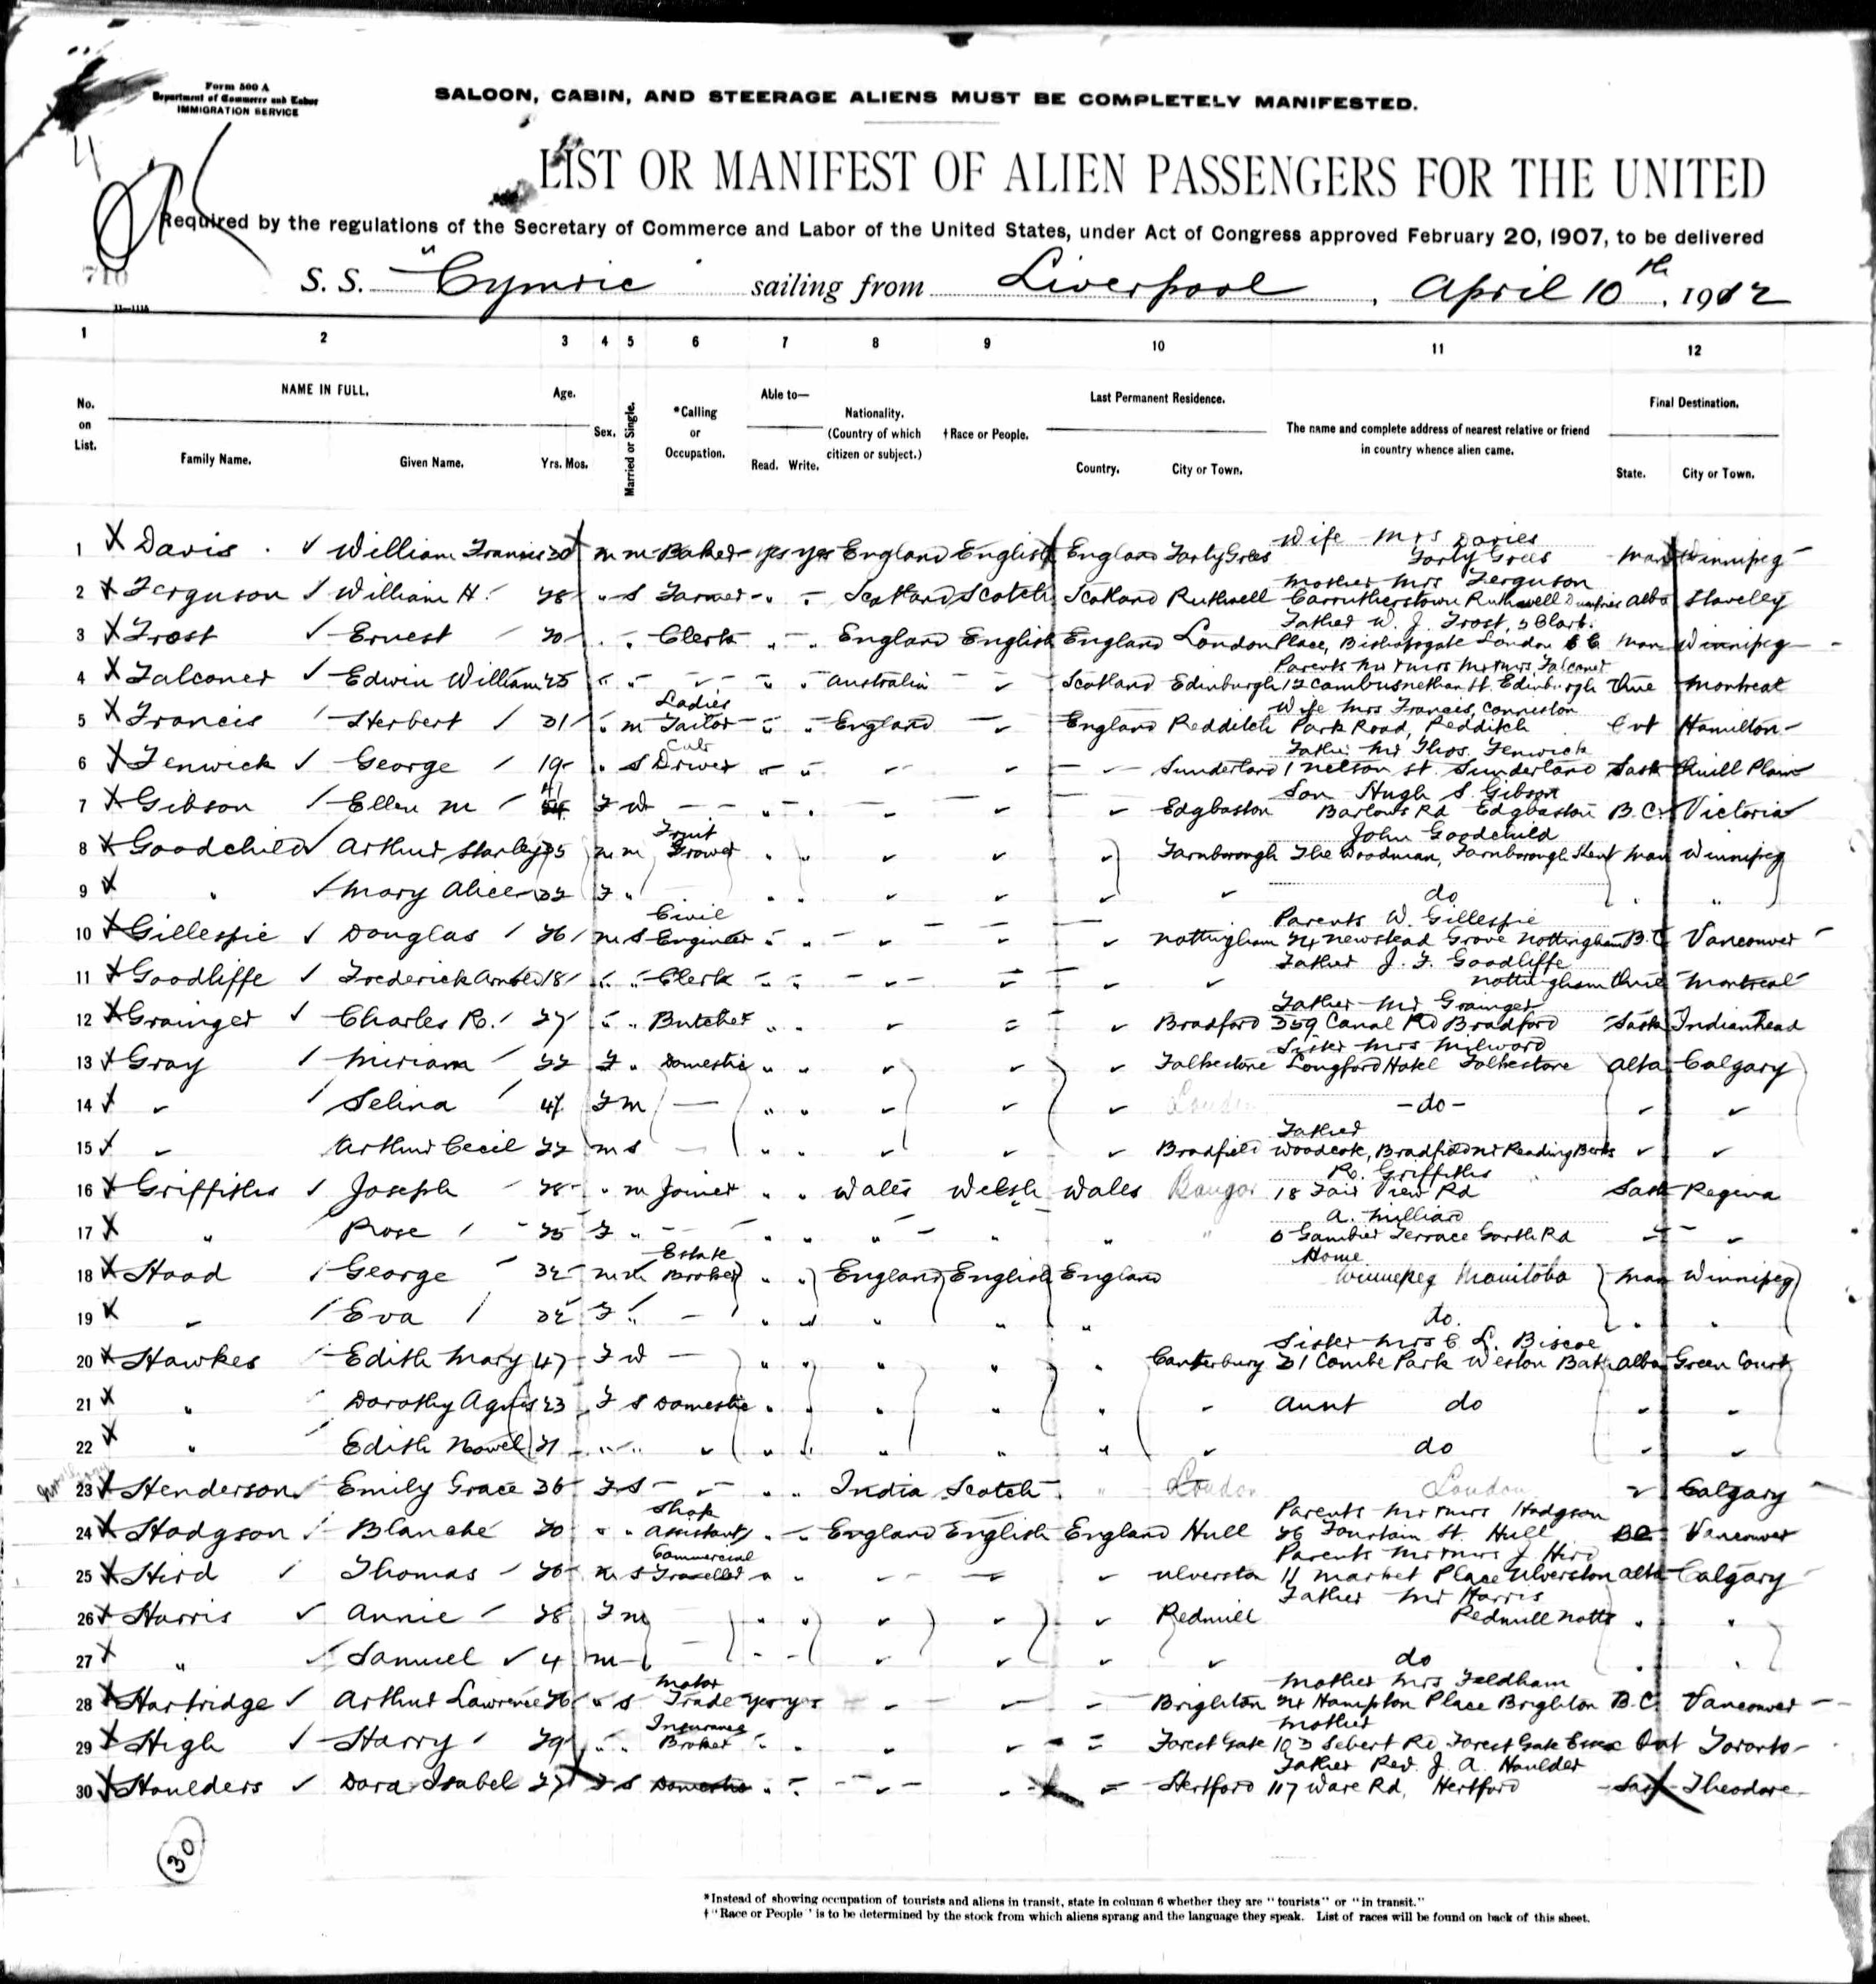 Form 500 A
Department of Commerce and Labor
IMMIGRATION SERVICE
SALOON, CABIN, AND STEERAGE ALIENS MUST BE COMPLETELY MANIFESTED.
LIST OR MANIFEST OF ALIEN PASSENGERS FOR THE UNITED
Required by the regulations of the Secretary of Commerce and Labor of the United States, under Act of Congress approved February 20, 1907, to be delivered
S. S. "Cymric" sailing from Liverpool, April 10th, 1912
1 2 3 4 5 6 7 8 9 10 11 12
No. on List. NAME IN FULL. Family Name. Given Name. Age. Yrs. Mos. Sex. Married or Single. *Calling or Occupation. Able to— Read. Write. Nationality. (Country of which citizen or subject.) †Race or People. Last Permanent Residence. Country. City or Town. The name and complete address of nearest relative or friend in country whence alien came. Final Destination. State. City or Town.
Wife Mrs Davies
1 X Davis William Francis 30 m m Baker yes yes England English England Forty Man Winnipeg
Mother Mrs Ferguson
2 X Ferguson William H. 28 " S Farmer " " Scotland Scotch Scotland Ruthwell Carrutherstown Ruthwell Dumfries Alba Staveley
Father W. J. Frost, 3 Clark
3 X Frost Ernest 20 " " Clerk " " England English England London Place, Bishopsgate London E C Man Winnipeg
Parents Mr & Mrs Falconer
4 X Falconer Edwin William 25 " " " " Australia Scotland Edinburgh 12 Cambusnethan St. Edinburgh Montreal
Ladies Wife Mrs Francis, Conniston
5 X Francis Herbert 31 " m Tailor " " England England Redditch Park Road, Redditch Ont Hamilton
Cab Father Mr Thos. Fenwick
6 X Fenwick George 19 " S Driver " " Sunderland 1 Nelson St. Sunderland Sask Quill Plain
Son Hugh S. Gibson
7 X Gibson Ellen M F W " " Edgbaston Barlows Rd Edgbaston B.C. Victoria
Fruit John Goodchild
8 X Goodchild Arthur Stanley 35 m m Grower " " Farnborough The Woodman, Farnborough Kent Man Winnipeg
9 X " Mary Alice 32 F " " " do " "
Civil Parents W. Gillespie
10 X Gillespie Douglas 26 m S Engineer " " Nottingham 24 Newstead Grove Nottingham B.C. Vancouver
Father J. F. Goodliffe
11 X Goodliffe Frederick 18 " " Clerk " " Nottingham Montreal
Father Mr Grainger
12 X Grainger Charles R. 27 " " Butcher " " Bradford 359 Canal Rd Bradford Sask Indianhead
Sister Mrs Milward
13 X Gray Miriam 22 F " Domestic " " Folkestone Longford Hotel Folkestone Alta Calgary
14 X Selina 47 F m — " " London - do -
Father
15 X Arthur Cecil 22 m s — " " Bradfield Woodcote, Bradfield Nr Reading Berks
R. Griffiths
16 X Griffiths Joseph 28 " m Joiner " " Wales Welsh Wales Bangor 18 Fair View Rd Sask Regina
A. Milliard
17 X " Rose 25 F " " " " " " " 5 Gambier Terrace Garth Rd
Estate Home
18 X Hood George 32 m m Broker " " England English England Winnipeg Manitoba Man Winnipeg
19 X Eva 32 F " — " " " " " do. " "
Sister Mrs E L. Biscoe
20 X Hawkes Edith Mary 47 F W — " " " " " Canterbury 31 Combe Park Weston Bath Alba Green Court
21 X " Dorothy Agnes 23 F S Domestic " " " " Aunt do
22 X " Edith 21 " " " " " " " do
23 X Henderson Emily Grace 36 F S " " India Scotch " London London Calgary
Shop Parents Mr & Mrs Hodgson
24 X Hodgson Blanche 20 " " Assistant " " England English England Hull 26 Fountain St. Hull BC Vancouver
Commercial Parents Mr & Mrs J Hird
25 X Hird Thomas 26 m S Traveller " " Ulverston 11 Market Place Ulverston Alta Calgary
Father Mr Harris
26 X Harris Annie 28 F m " " Redmill Redmill Notts " "
27 X " Samuel 4 m — " " do
Motor Mother Mrs Feldham
28 X Hartridge Arthur Lawrence 26 " S Trade yes yes Brighton 24 Hampton Place Brighton B.C. Vancouver
Insurance Mother
29 X High Harry 29 " " Broker " " Forest Gate 103 Sebert Rd Forest Gate Essex Ont Toronto
Father Rev. J. A. Houlder
30 X Houlders Dora Isabel 27 F S Domestic " " Hertford 117 Ware Rd, Hertford Sask Theodore
30
*Instead of showing occupation of tourists and aliens in transit, state in column 6 whether they are "tourists" or "in transit."
†"Race or People" is to be determined by the stock from which aliens sprang and the language they speak. List of races will be found on back of this sheet.